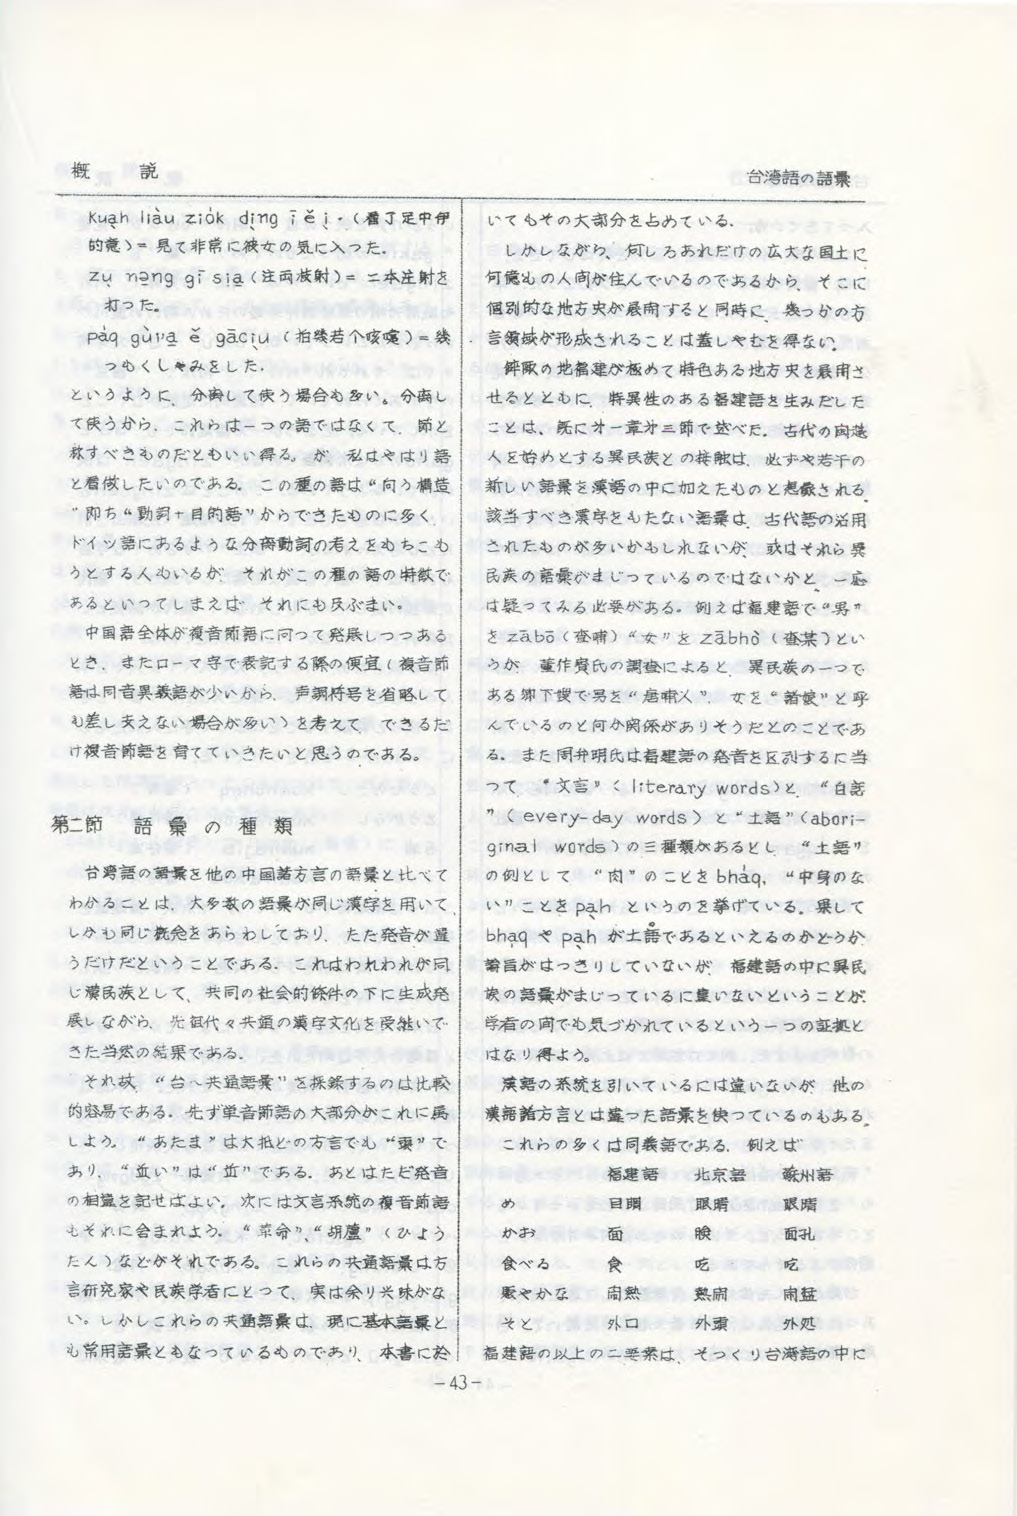 概説
台湾語の語彙
kuah liàu ziȯk dįng ī ě į.(看了足中伊
的意)= 見て非常に彼女の気に入った.
zų nəng gī sia(注両枝射)= 二本注射を
打った.
(拍幾若个咳嚏)= 幾
つもくしゃみをした.
というように、分离して使う場合も多い。分离し
て使うから、これらは一つの語ではなくて、節と
看做したいのである. この種の語は“向う構造
”即ち“動詞+目的語”からできたものに多く、
ドイツ語にあるような分离動詞の考えをもちこも
うとする人もいるが、それがこの種の語の特徴で
あるといってしまえば、それにも及ぶまい。
中国語全体が複音節語に向って発展しつつある
とき、またローマ字で表記する際の便宜(複音節
語は同音異義語が少いから、声調符号を省略して
も差し支えない場合が多い)を考えて、できるだ
け複音節語を育てていきたいと思うのである。
第二節 語彙の種類
台湾語の語彙を他の中国諸方言の語彙と比べて
わかることは、大多数の語彙が同じ漢字を用いて、
しかも同じ概念をあらわしており、ただ発音が違
うだけだということである. これはわれわれが同
じ漢民族として、共同の社会的條件の下に生成発
展しながら、先祖代々共通の漢字文化を受継いで
きた当然の結果である.
それ故、“台〜共通語彙”を採録するのは比較
的容易である. 先ず単音節語の大部分がこれに属
しよう. “あたま”は大抵どの方言でも“頭”で
あり、“近い”は“近”である. あとはただ発音
の相違を記せばよい. 次には文言系統の複音節語
もそれに含まれよう. “革命”、“胡蘆”(ひょう
たん)などがそれである. これらの共通語彙は方
言研究家や民族学者にとって、実は余り興味がな
い。しかしこれらの共通語彙は、現に基本語彙と
も常用語彙ともなっているものであり、本書に於
いてもその大部分を占めている.
しかしながら、何しろあれだけの広大な国土に
何億もの人间が住んでいるのであるから、そこに
個別的な地方史が展用すると同時に、幾つかの方
言領域が形成されることは蓋しやむを得ない.
僻陬の地福建が極めて特色ある地方史を展用さ
せるとともに、特異性のある福建語を生みだした
ことは、既に才一章才三節で述べた. 古代の
人を始めとする異民族との接触は、必ずや若干の
新しい語彙を漢語の中に加えたものと想像される.
該当すべき漢字をもたない語彙は、古代語の活用
されたものが多いかもしれないが、或はそれら異
民族の語彙がまじっているのではないかと、一応
は疑ってみる必要がある. 例えば福建語で“男”
を zābō(查哺)“女”を zābhò(查某)とい
うが、董作賓氏の調査によると、異民族の一つで
んでいるのと何か関係がありそうだとのことであ
る. また周弁明氏は福建語の発音を区別するに当
って、“文言”( literary words)と、“白話
”(every-day words)と“土語”(abori-
ginal words)の三種類があるとし、“土語”
の例として、“肉”のことを bhàq, “中身のな
い”ことを pạh というのを挙げている. 果して
bhàq や pạh が土語であるといえるのかどうか
論旨がはっきりしていないが、福建語の中に異民
族の語彙がまじっているに違いないということが、
学者の间でも気づかれているという一つの証拠と
はなり得よう。
漢語の系統を引いているには違いないが、他の
漢語諸方言とは違った語彙を使っているのもある.
これらの多くは同義語である. 例えば
福建語 北京語 蘇州語
め 目睭 眼睛 眼睛
かお 面 臉 面孔
食べる 食 吃 吃
賑やかな 闹熱 熱闹 闹猛
そと 外口 外頭 外処
福建語の以上の二要素は、そっくり台湾語の中に
-43-